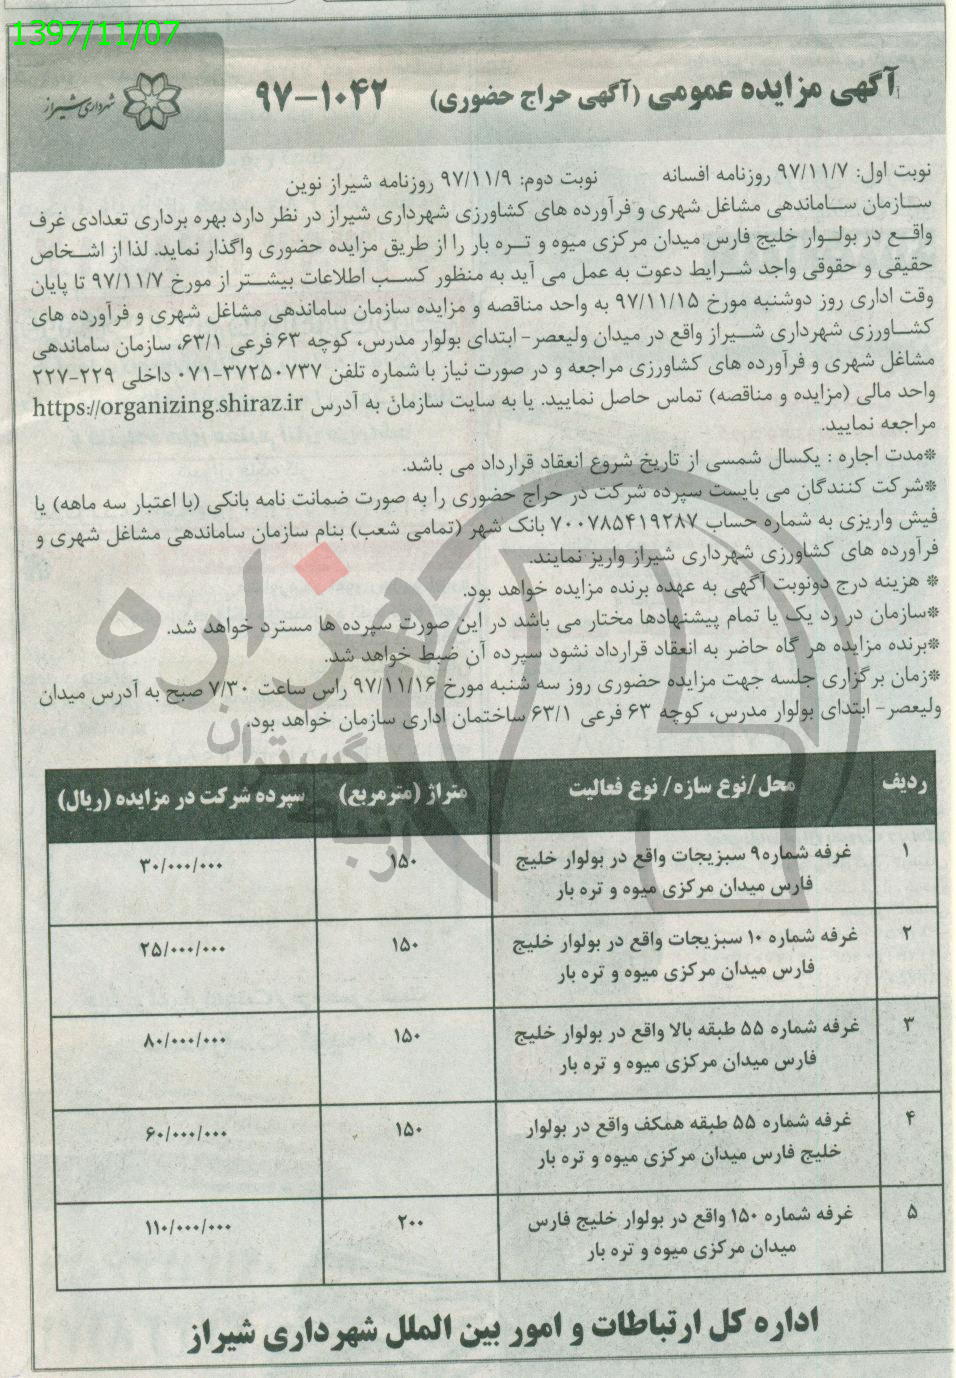 1397/11/07
آگهی مزایده عمومی (آگهی حراج حضوری) ۱۰۴۲-۹۷
شهرداری شیراز
نوبت اول: ۹۷/۱۱/۷ روزنامه افسانه نوبت دوم: ۹۷/۱۱/۹ روزنامه شیراز نوین
سازمان ساماندهی مشاغل شهری و فرآورده های کشاورزی شهرداری شیراز در نظر دارد بهره برداری تعدادی غرف
واقع در بولوار خلیج فارس میدان مرکزی میوه و تره بار را از طریق مزایده حضوری واگذار نماید. لذا از اشخاص
حقیقی و حقوقی واجد شرایط دعوت به عمل می آید به منظور کسب اطلاعات بیشتر از مورخ ۹۷/۱۱/۷ تا پایان
وقت اداری روز دوشنبه مورخ ۹۷/۱۱/۱۵ به واحد مناقصه و مزایده سازمان ساماندهی مشاغل شهری و فرآورده های
کشاورزی شهرداری شیراز واقع در میدان ولیعصر- ابتدای بولوار مدرس، کوچه ۶۳ فرعی ۶۳/۱، سازمان ساماندهی
مشاغل شهری و فرآورده های کشاورزی مراجعه و در صورت نیاز با شماره تلفن ۳۷۲۵۰۷۳۷-۰۷۱ داخلی ۲۲۹-۲۲۷
واحد مالی (مزایده و مناقصه) تماس حاصل نمایید. یا به سایت سازمان به آدرس https://organizing.shiraz.ir
مراجعه نمایید.
*مدت اجاره : یکسال شمسی از تاریخ شروع انعقاد قرارداد می باشد.
*شرکت کنندگان می بایست سپرده شرکت در حراج حضوری را به صورت ضمانت نامه بانکی (با اعتبار سه ماهه) یا
فیش واریزی به شماره حساب ۷۰۰۷۸۵۴۱۹۲۸۷ بانک شهر (تمامی شعب) بنام سازمان ساماندهی مشاغل شهری و
فرآورده های کشاورزی شهرداری شیراز واریز نمایند.
* هزینه درج دونوبت آگهی به عهده برنده مزایده خواهد بود.
*سازمان در رد یک یا تمام پیشنهادها مختار می باشد در این صورت سپرده ها مسترد خواهد شد.
*برنده مزایده هر گاه حاضر به انعقاد قرارداد نشود سپرده آن ضبط خواهد شد.
*زمان برگزاری جلسه جهت مزایده حضوری روز سه شنبه مورخ ۹۷/۱۱/۱۶ راس ساعت ۷/۳۰ صبح به آدرس میدان
ولیعصر- ابتدای بولوار مدرس، کوچه ۶۳ فرعی ۶۳/۱ ساختمان اداری سازمان خواهد بود.
هزاره
گستران
ارتباط
ردیف محل/نوع سازه/ نوع فعالیت متراژ (مترمربع) سپرده شرکت در مزایده (ریال)
۱ غرفه شماره۹ سبزیجات واقع در بولوار خلیج ۱۵۰ ۳۰/۰۰۰/۰۰۰
فارس میدان مرکزی میوه و تره بار
۲ غرفه شماره ۱۰ سبزیجات واقع در بولوار خلیج ۱۵۰ ۲۵/۰۰۰/۰۰۰
فارس میدان مرکزی میوه و تره بار
۳ غرفه شماره ۵۵ طبقه بالا واقع در بولوار خلیج ۱۵۰ ۸۰/۰۰۰/۰۰۰
فارس میدان مرکزی میوه و تره بار
۴ غرفه شماره ۵۵ طبقه همکف واقع در بولوار ۱۵۰ ۶۰/۰۰۰/۰۰۰
خلیج فارس میدان مرکزی میوه و تره بار
۵ غرفه شماره ۱۵۰ واقع در بولوار خلیج فارس ۲۰۰ ۱۱۰/۰۰۰/۰۰۰
میدان مرکزی میوه و تره بار
اداره کل ارتباطات و امور بین الملل شهرداری شیراز